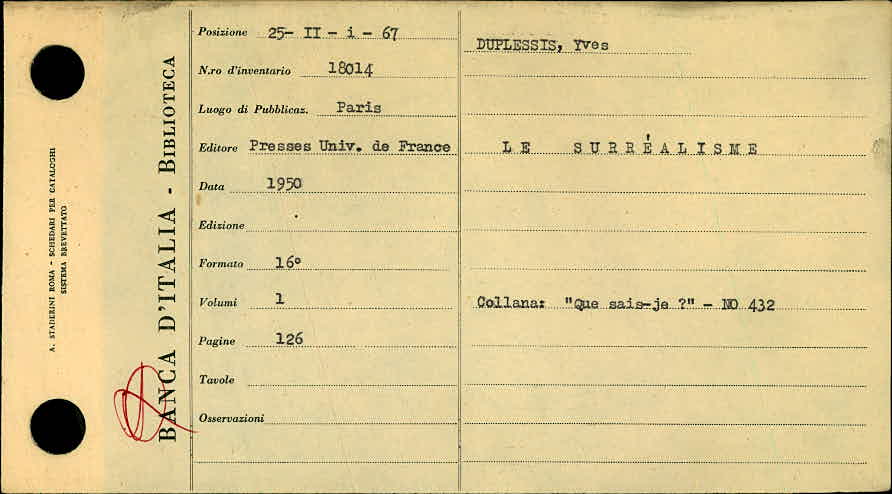 A. STADERINI ROMA - SCHEDARI PER CATALOGHI
SISTEMA BREVETTATO
BANCA D'ITALIA - BIBLIOTECA
Posizione 25- II - i - 67
N.ro d'inventario 18014
Luogo di Pubblicaz. Paris
Editore Presses Univ. de France
Data 1950
Edizione
Formato 16°
Volumi 1
Pagine 126
Tavole
Osservazioni
DUPLESSIS, Yves
LE SURRÉALISME
Collana: "Que sais-je ?" - NO 432